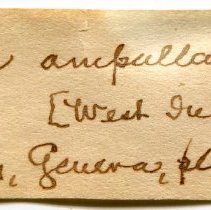 ampulla
[West In
Geneva, pl